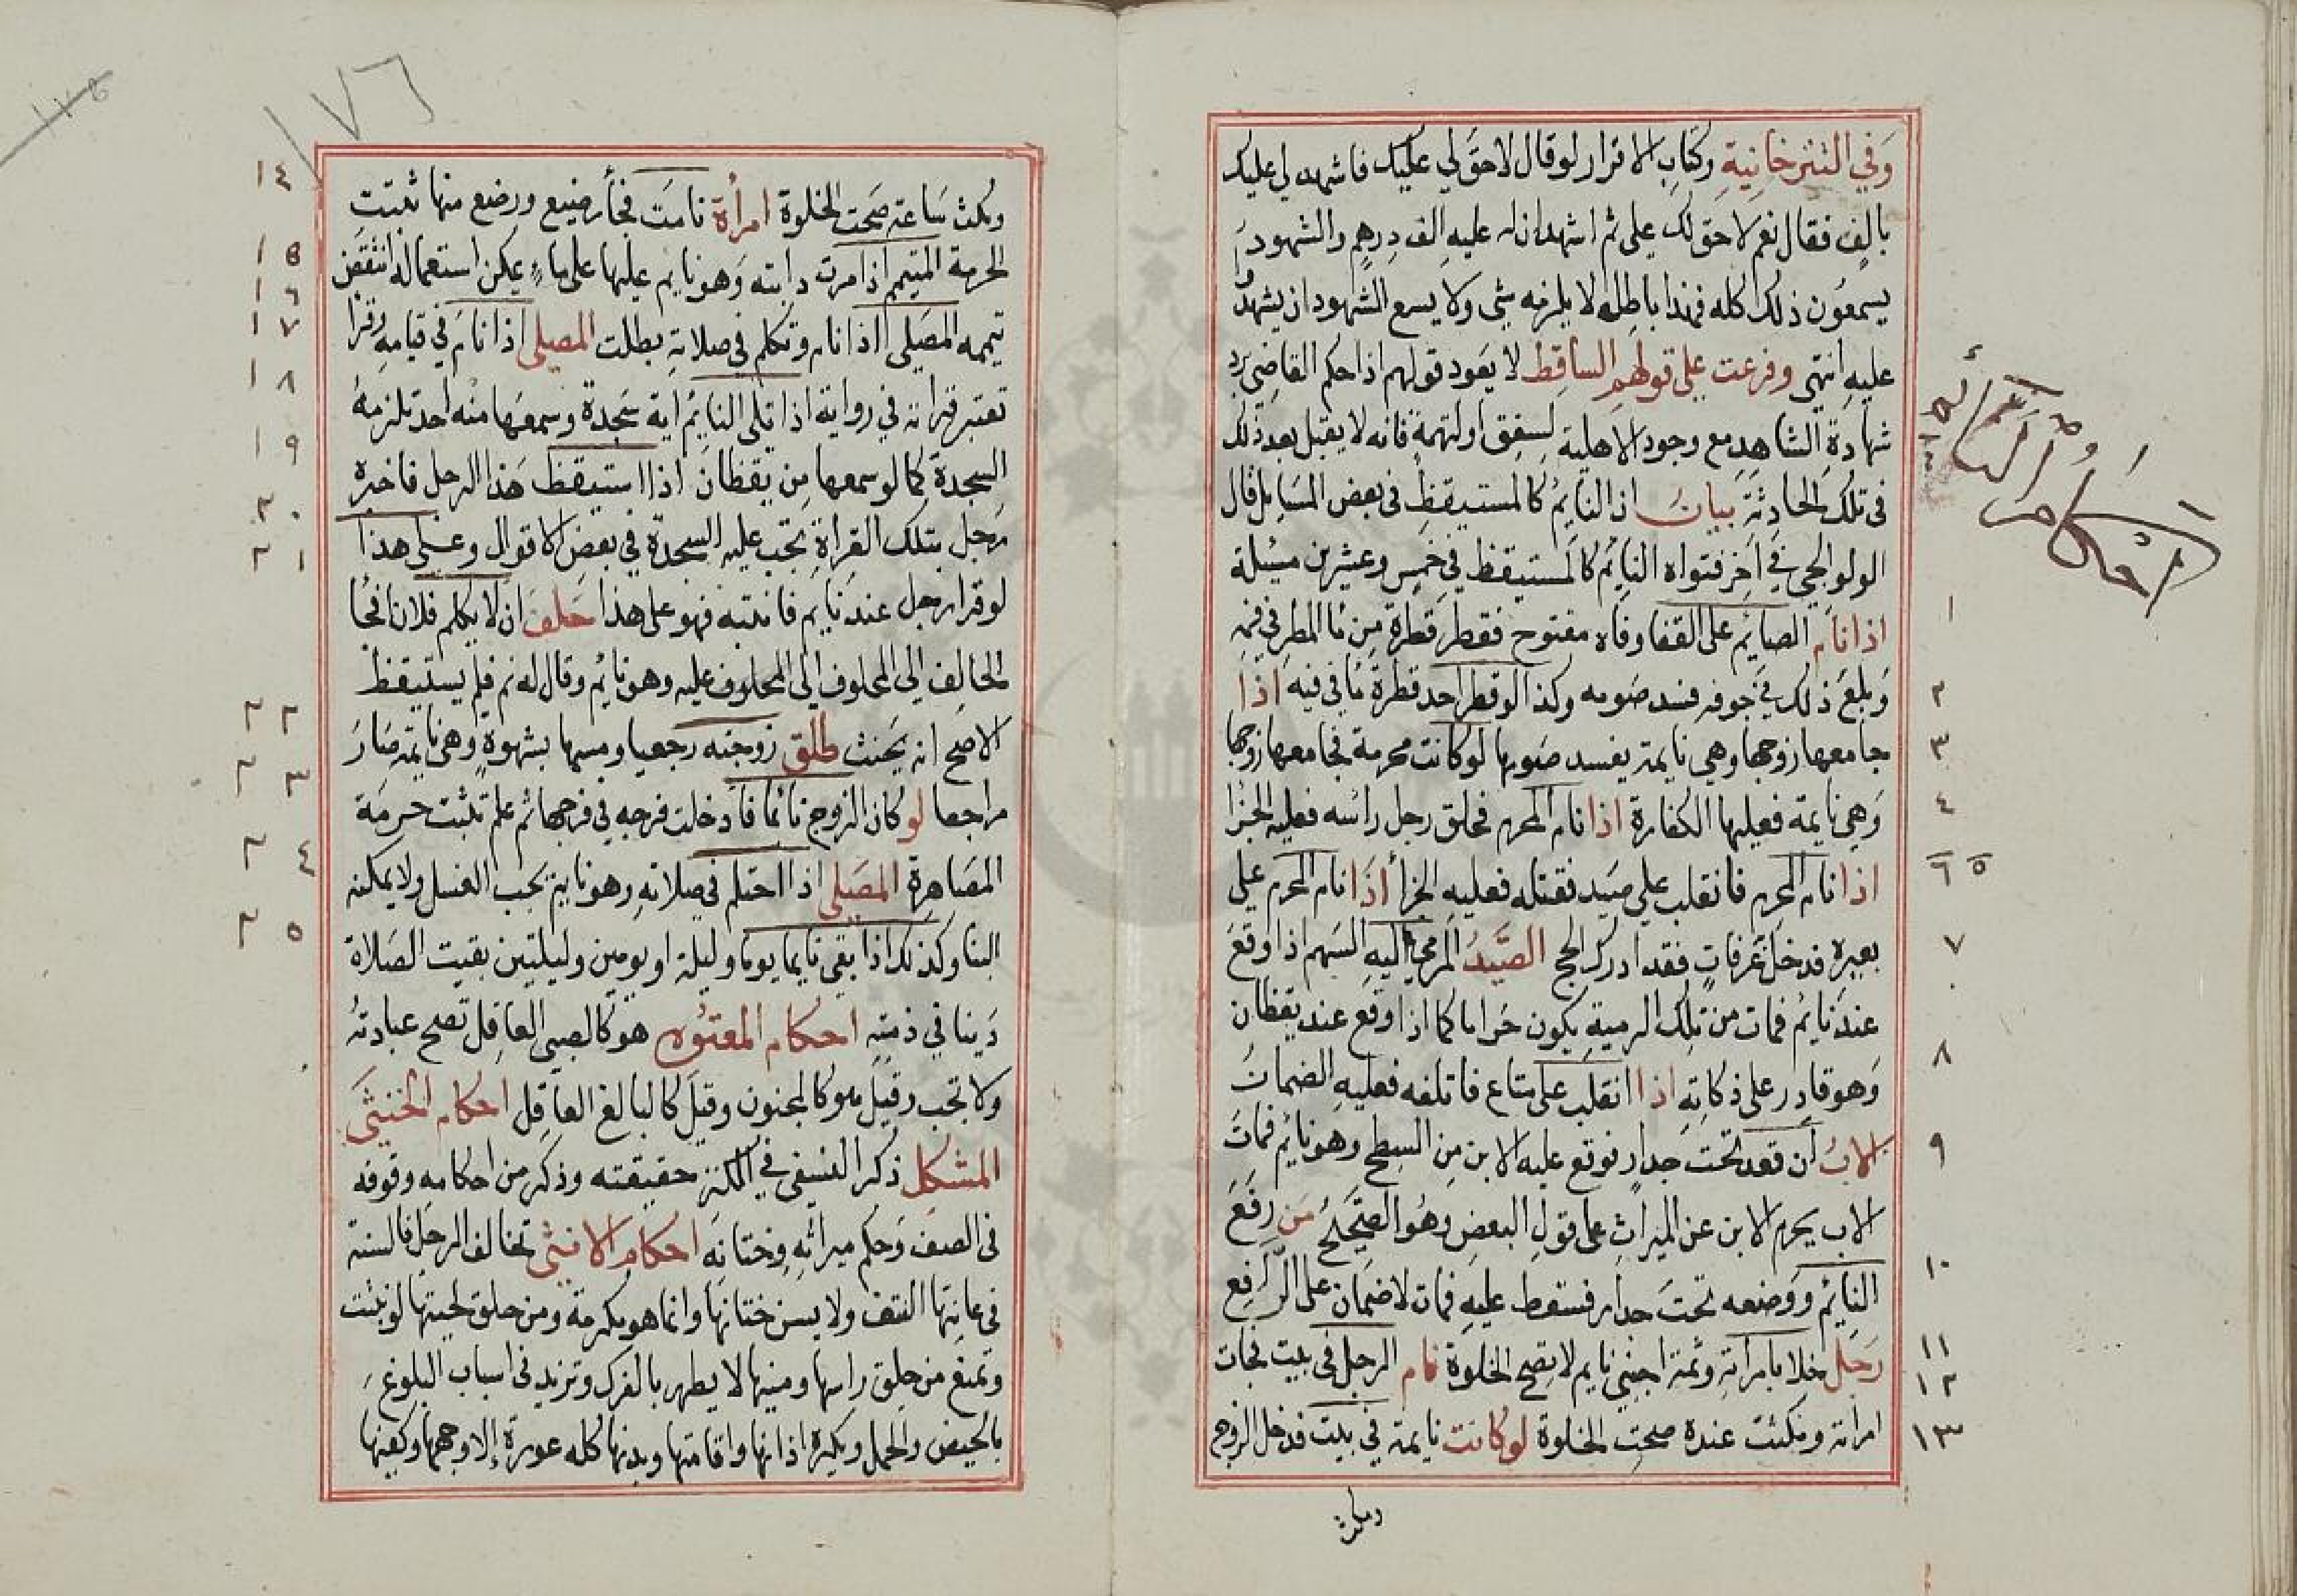 وفي التترخانية وكتاب الاقرار لو قال لا حق لي عليك فاشهد لي عليك
بالف فقال نعم لا حق لك علي ثم اشهد ان له عليه الف درهم والشهود
يسمعون ذلك كله فهذا باطل لا يلزمه شي ولا يسع الشهود ان يشهد
عليه انتهي وفرعت علي قولهم الساقط لا يعود قولهم اذا حكم القاضي برد
شهادة الشاهد مع وجود الاهلية لسفق او لتهمة فانه لا يقبل بعد ذلك
في تلك الحادثة بيان ان النايم كالمستيقظ في بعض المسايل قال
الولوالجي في اخر فتواه النايم كالمستيقظ في خمس وعشرين مسئلة
اذا نام الصايم على القفا وفاه مفتوح فقطر قطرة من ما المطر في فمه
وبلغ ذلك في جوفه فسد صومه وكذا لو قطر احد قطرة ما في فيه اذا
جامعها زوجها وهي نايمة يفسد صومها لو كانت محرمة فجامعها زوجها
وهي نايمة فعليها الكفارة اذا نام المحرم فحلق رجل راسه فعليه الجزا
اذا نام المحرم فانقلب علي صيد فقتله فعليه الجزا اذا نام المحرم علي
بعيره فدخل عرفات فقد ادرك الحج الصيد المرمي اليه السهم اذا وقع
عند نايم فمات من تلك الرمية يكون حراما كما اذا وقع عند يقظان
وهو قادر على ذكاته اذا انقلب على متاع فاتلفه فعليه الضمان
الاب ان قعد تحت جدار فوقع عليه الابن من السطح وهو نائم فمات
الاب يحرم الابن عن الميراث على قول البعض وهو الصحيح من رفع
النائم ووضعه تحت جدار فسقط عليه فمات لا ضمان على الرافع
رجل خلا بامراته وثمة اجنبي نايم لا تصح الخلوة نام الرجل في بيت فجات
امراته ومكثت عنده صحت الخلوة لو كانت نايمة في بيت فدخل الزوج
ومكث
احكام النائم
١
٢
٣
٤
٥ ٦
٧
٨
٩
١٠
١١
١٢
١٣
١٧٦
ومكث ساعة صحت الخلوة امرأة نامت فجأ رضيع ورضع منها ثبتت
الحرمة المتيمم اذا مرت دابته وهو نايم عليها على ماء يمكن استعماله انتقض
تيممه المصلي اذا نام وتكلم في صلاته بطلت المصلي اذا نام في قيامه وقرا
تعتبر قراته في رواية اذا تلى النايم اية سجدة وسمعها منه احد تلزمه
السجدة كما لو سمعها من يقظان اذا استيقظ هذا الرجل فاخبره
رجل بتلك القراة تجب عليه السجدة في بعض الاقوال وعلى هذا
لو قرا رجل عند نايم فانتبه فهو على هذا حلف ان لا يكلم فلان فجأ
الحالف الي المحلوف الي المحلوف عليه وهو نايم وقال له نم فلم يستيقظ
الاصح انه يحنث طلق زوجته رجعيا ومسها بشهوة وهي نايمة صار
مراجعا لو كان الزوج نائما فادخلت فرجه في فرجها ثم علم تثبت حرمة
المصاهرة المصلي اذا احتلم في صلاته وهو نايم يجب الغسل ولا يمكنه
البنا وكذلك اذا بقي نايما يوما وليلة او يومين وليلتين بقيت الصلاة
دينا في ذمته احكام المعتوه هو كالصبي العاقل تصح عبادته
ولا تجب وقيل هو كالمجنون وقيل كالبالغ العاقل احكام الخنثي
المشكل ذكر النسفي في الكنز حقيقته وذكر من احكامه وقوفه
في الصف وحكم ميراثه وختانه احكام الانثي تخالف الرجل فالسنة
في عانتها النتف ولا يسن ختانها وانما هو مكرمة ومن حلق لحيتها لو نبتت
وتمنع من حلق راسها ومنيها لا يطهر بالفرك وتزيد في اسباب البلوغ
بالحيض والحمل ويكره اذانها واقامتها وبدنها كله عورة الا وجهها وكفيها
١٤
١٥
١٦
١٧
١٨
١٩
٢٠
٢١
٢٢
٢٣
٢٤
٢٥